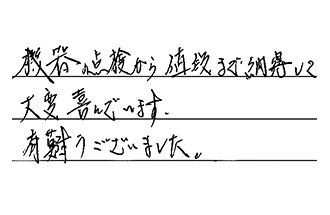 機器の点検から値段まで納得して
大変喜んでいます.
有難うございました。